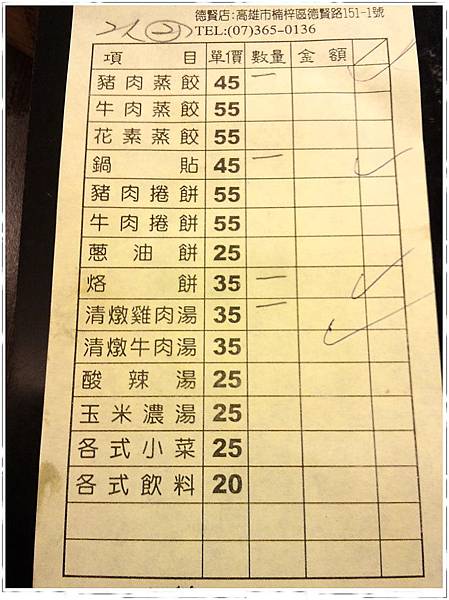 德賢店:高雄市楠梓區德賢路151-1號
TEL:(07)365-0136
項目 單價 數量 金額
豬肉蒸餃 45 一
牛肉蒸餃 55
花素蒸餃 55
鍋貼 45 一
豬肉捲餅 55
牛肉捲餅 55
蔥油餅 25
烙餅 35 一
清燉雞肉湯 35 一
清燉牛肉湯 35
酸辣湯 25
玉米濃湯 25
各式小菜 25
各式飲料 20